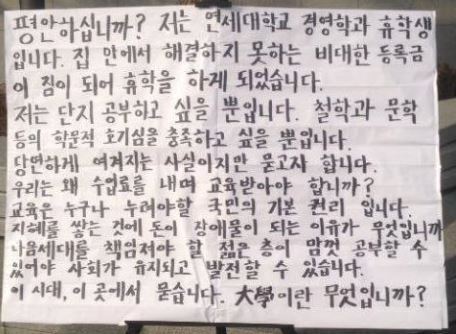 평안하십니까? 저는 연세대학교 경영학과 휴학생
입니다. 집 안에서 해결하지 못하는 비대한 등록금
이 짐이 되어 휴학을 하게 되었습니다.
저는 단지 공부하고 싶을 뿐입니다. 철학과 문학
등의 학문적 호기심을 충족하고 싶을 뿐입니다.
당연하게 여겨지는 사실이지만 묻고자 합니다.
우리는 왜 수업료를 내며 교육받아야 합니까?
교육은 누구나 누려야할 국민의 기본 권리 입니다.
지혜를 쌓는 것에 돈이 장애물이 되는 이유가 무엇입니까
다음세대를 책임져야 할 젊은 층이 맘껏 공부할 수
있어야 사회가 유지되고 발전할 수 있습니다.
이 시대, 이 곳에서 묻습니다. 大學이란 무엇입니까?